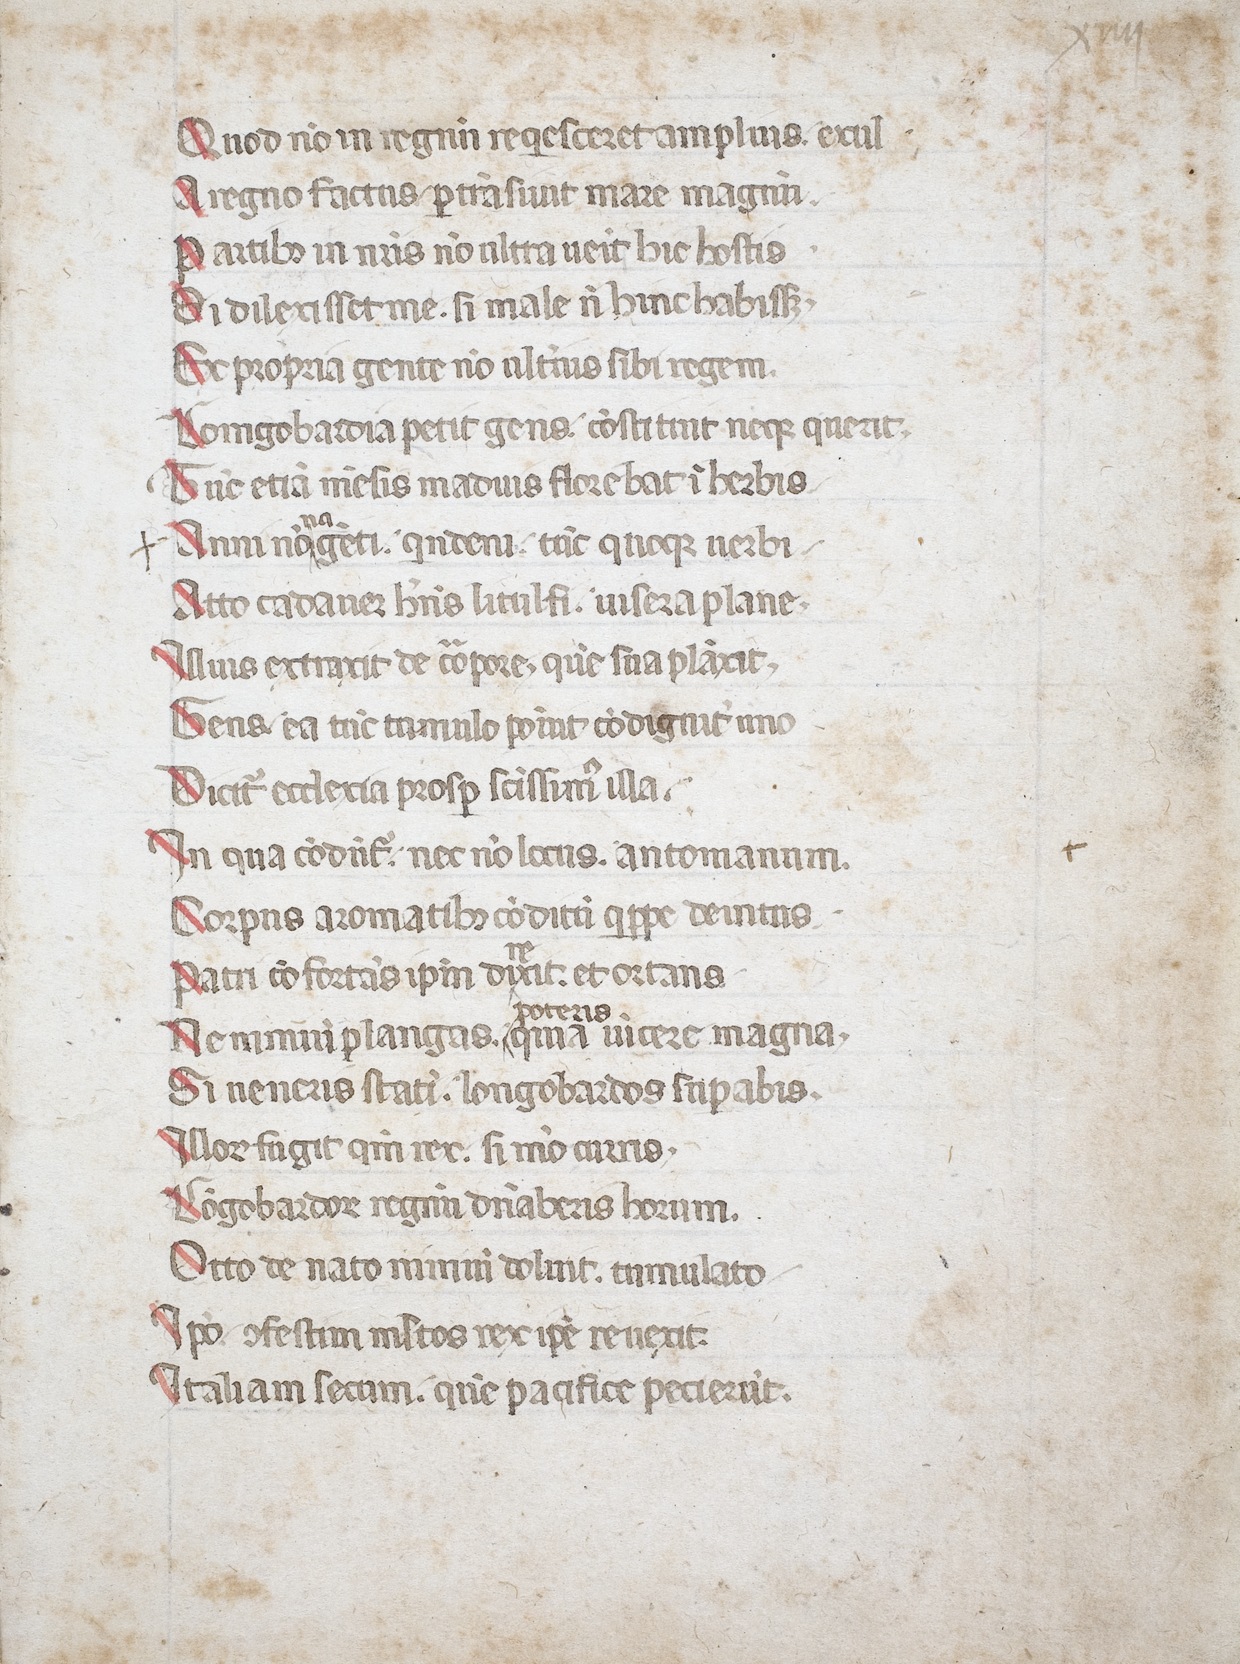 xiiij
Quod nō in regnū reqͥesceret amplius. exul
A regno factus ꝑtrāsiuit mare magnū.
Partibꝫ in nr̄is nō ultra ueīt hic hostis
Si dilexisset me. si male n̄ hinc habissꝫ,
Ex propria gente nō ultius sibi regem.
Longobardia petit gens. cōstituit neqꝫ querit,
Tūc etiā mēsis madius florebat ī herbis
Anni nōgēti. qͥndeni. tūc quoqꝫ uerbi
na
Atto cadauer hn̄s litulfi. uisera plane,
Illius extraxit de corpore, que sua plāxit,
Gens ea tūc tumulo poīut cōdignūt uno
Dicit᷒ ecclexia prosꝑ scīssimo illa.
In qua cōdūt᷒. nec nō locus. antomanum.
Corpus aromatibꝫ cōditū qͥppe deintus
Patri cōfortās ipm̄ dixit. et ortans
re
poteris
Ne nimiū plangas. quia uīcere magna,
Si ueneris statī. longobardos suꝑabis.
Illoꝝ fugit qm̄ rex. si mō curris,
Lōgobardoꝝ regnū dn̄aberis horum.
Otto de nato nimiū doluit. tumulato
Ipō ꝯfestim mīstos rex ipē reuexit
Italiam secum. que pacifice pecierūt.